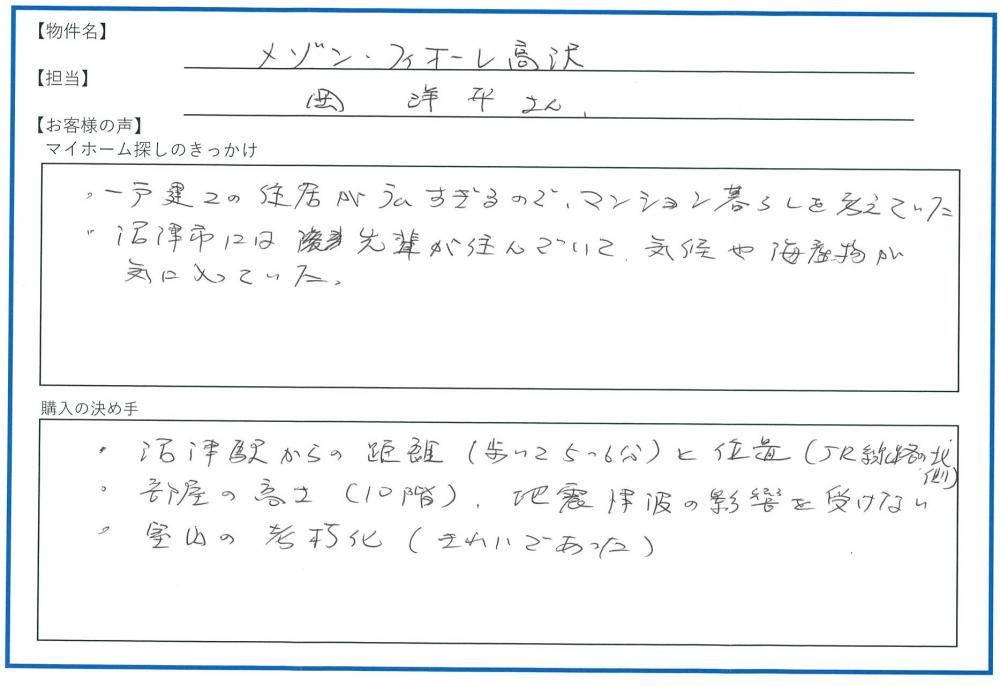 【物件名】
メゾン・フィオーレ高沢
【担当】
岡 洋平さん
【お客様の声】
マイホーム探しのきっかけ
・一戸建ての住居が広すぎるので、マンション暮らしを考えていた
・沼津市には 先輩が住んでいて、気候や海産物が
気に入っていた。
購入の決め手
・沼津駅からの距離（歩いて5〜6分）と位置（JR線路の北側）
・部屋の高さ（10階）、地震津波の影響を受けない
・室内の老朽化（きれいであった）